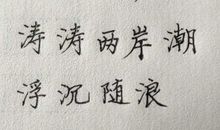 涛涛两岸潮
浮沉随浪